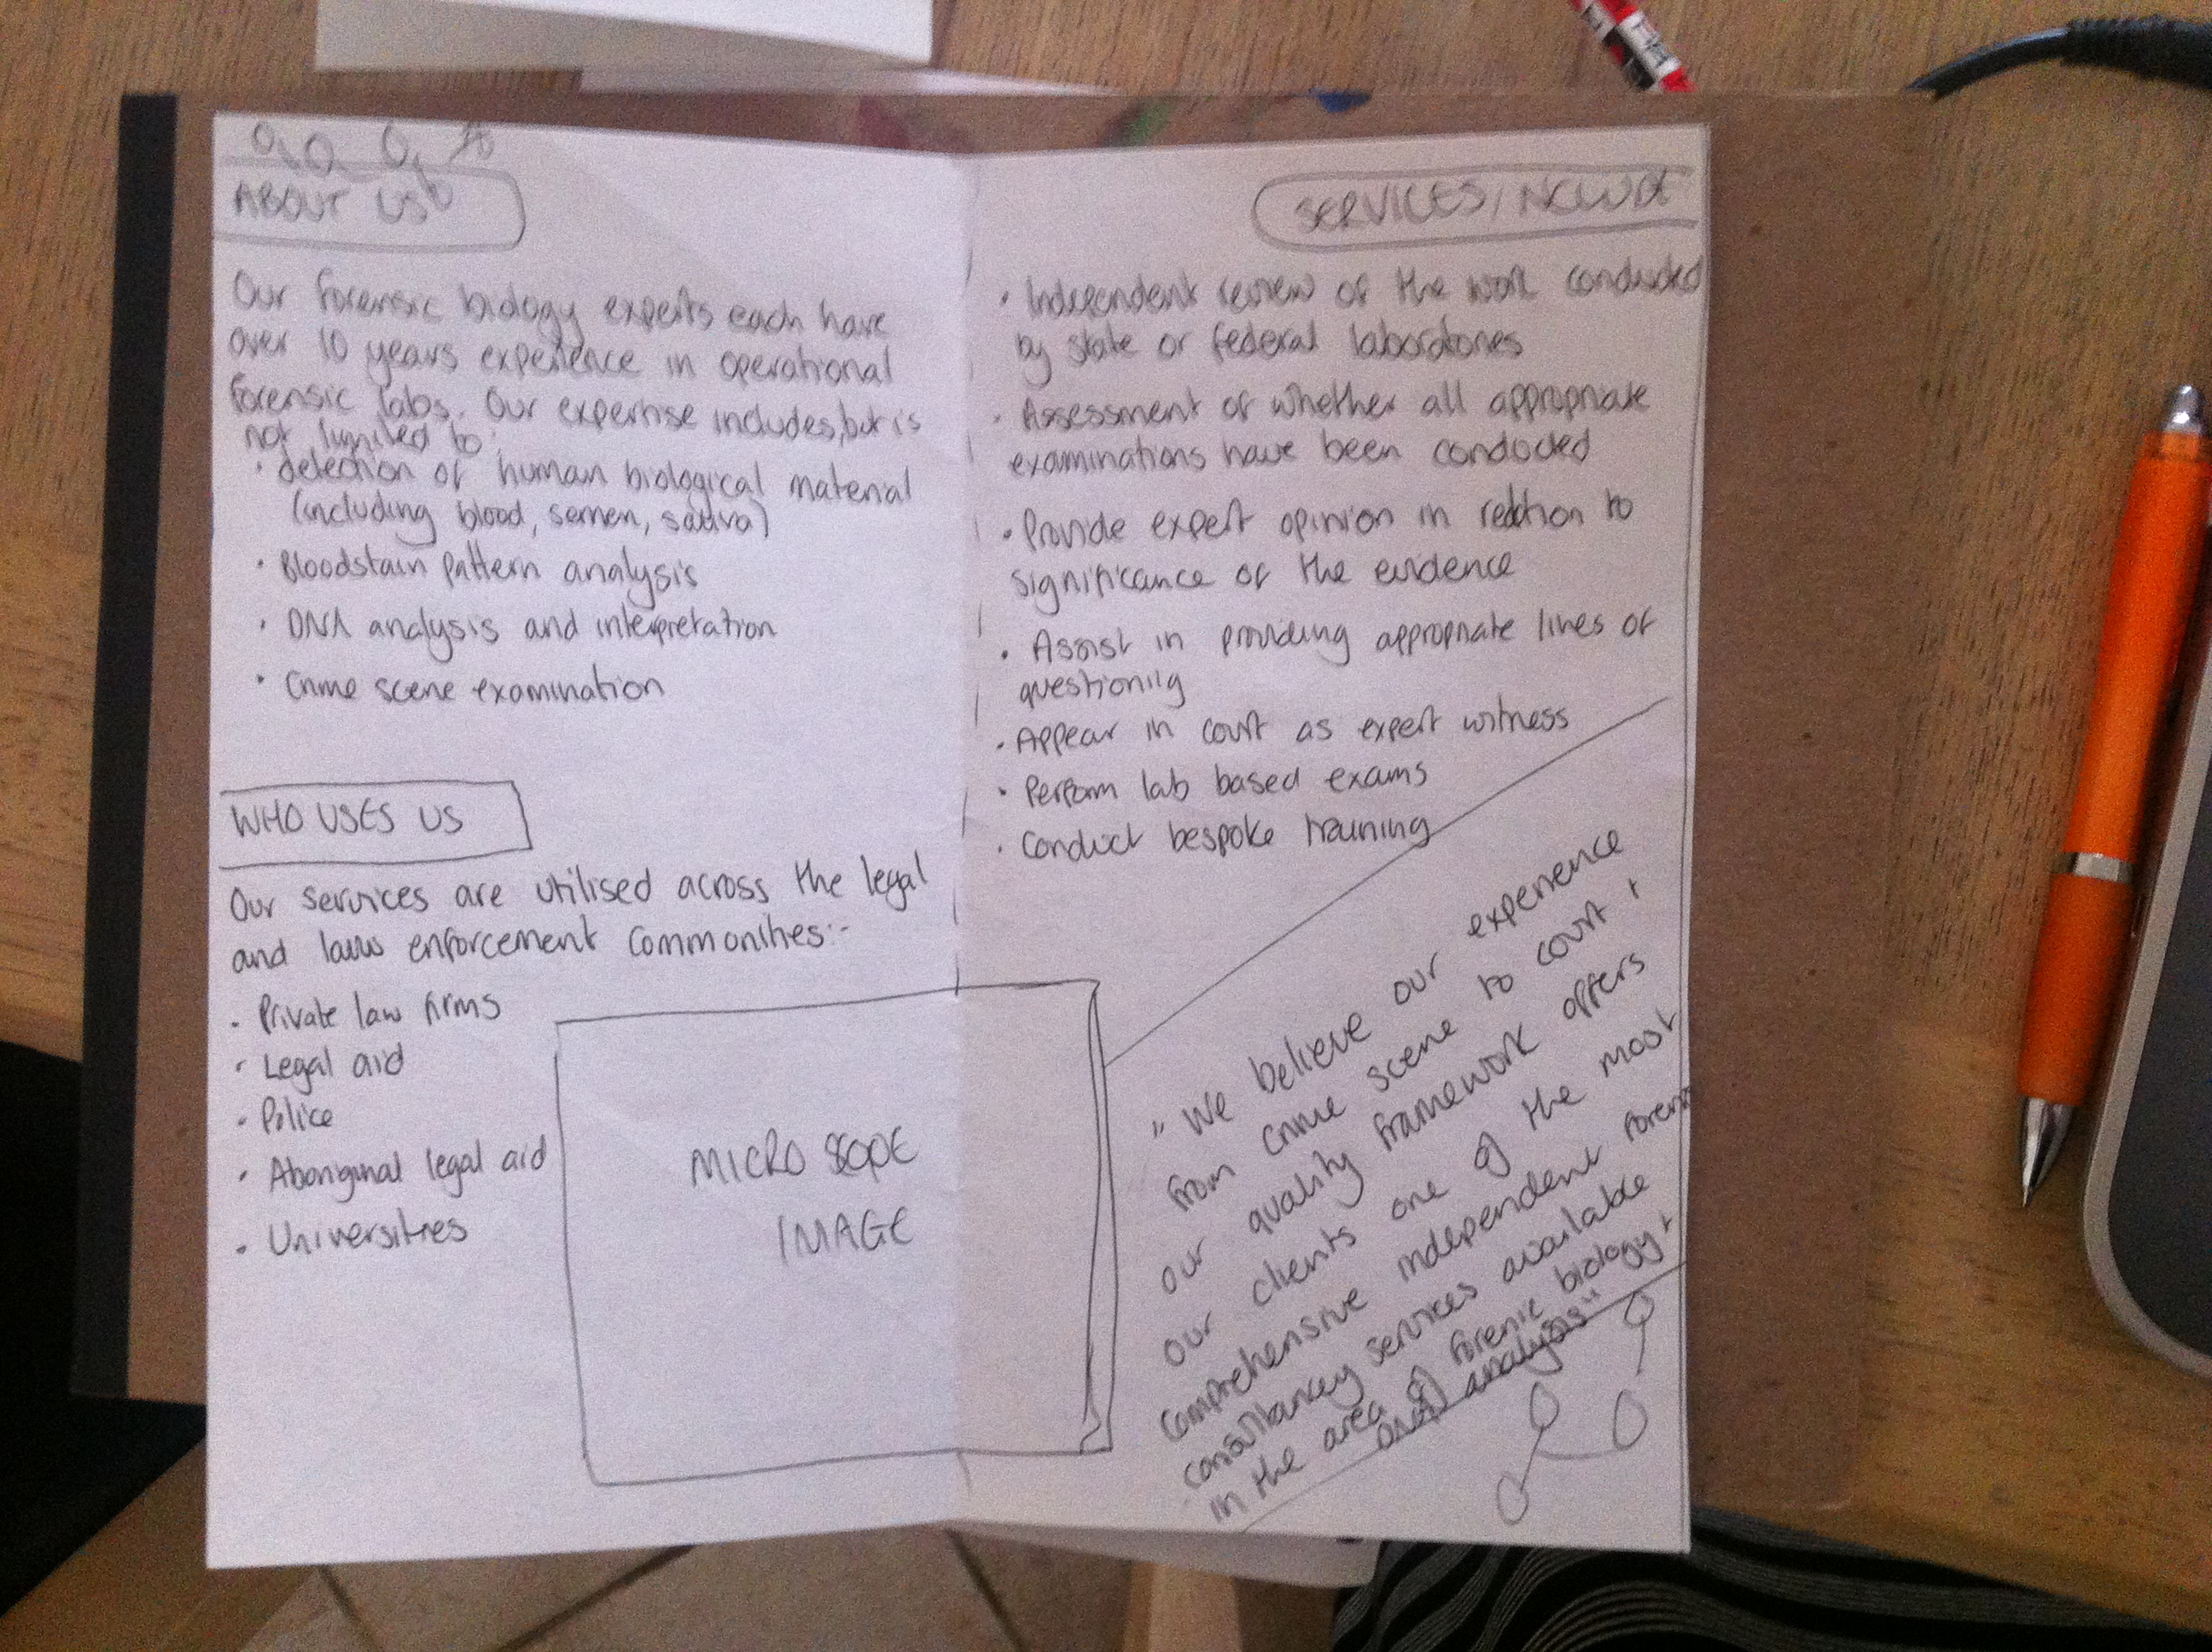 ABOUT US
Our forensic biology experts each have
over 10 years experience in operational
forensic labs. Our expertise includes, but is
not limited to:
· detection of human biological material
(including blood, semen, saliva)
· Bloodstain pattern analysis
· DNA analysis and interpretation
· Crime scene examination
WHO USES US
Our services are utilised across the legal
and law enforcement communities:-
· Private law firms
· Legal aid
· Police
· Aboriginal legal aid
· Universities
MICROSCOPE
IMAGE
SERVICES INCLUDE
· Independent review of the work conducted
by state or federal laboratories
· Assessment of whether all appropriate
examinations have been conducted
· Provide expert opinion in relation to
significance of the evidence
· Assist in providing appropriate lines of
questioning
· Appear in court as expert witness
· Perform lab based exams
· Conduct bespoke training
"We believe our experience
from crime scene to court,
our quality framework offers
our clients one of the most
comprehensive independent forensic
consultancy services available
in the area of forenic biology +
DNA analysis"